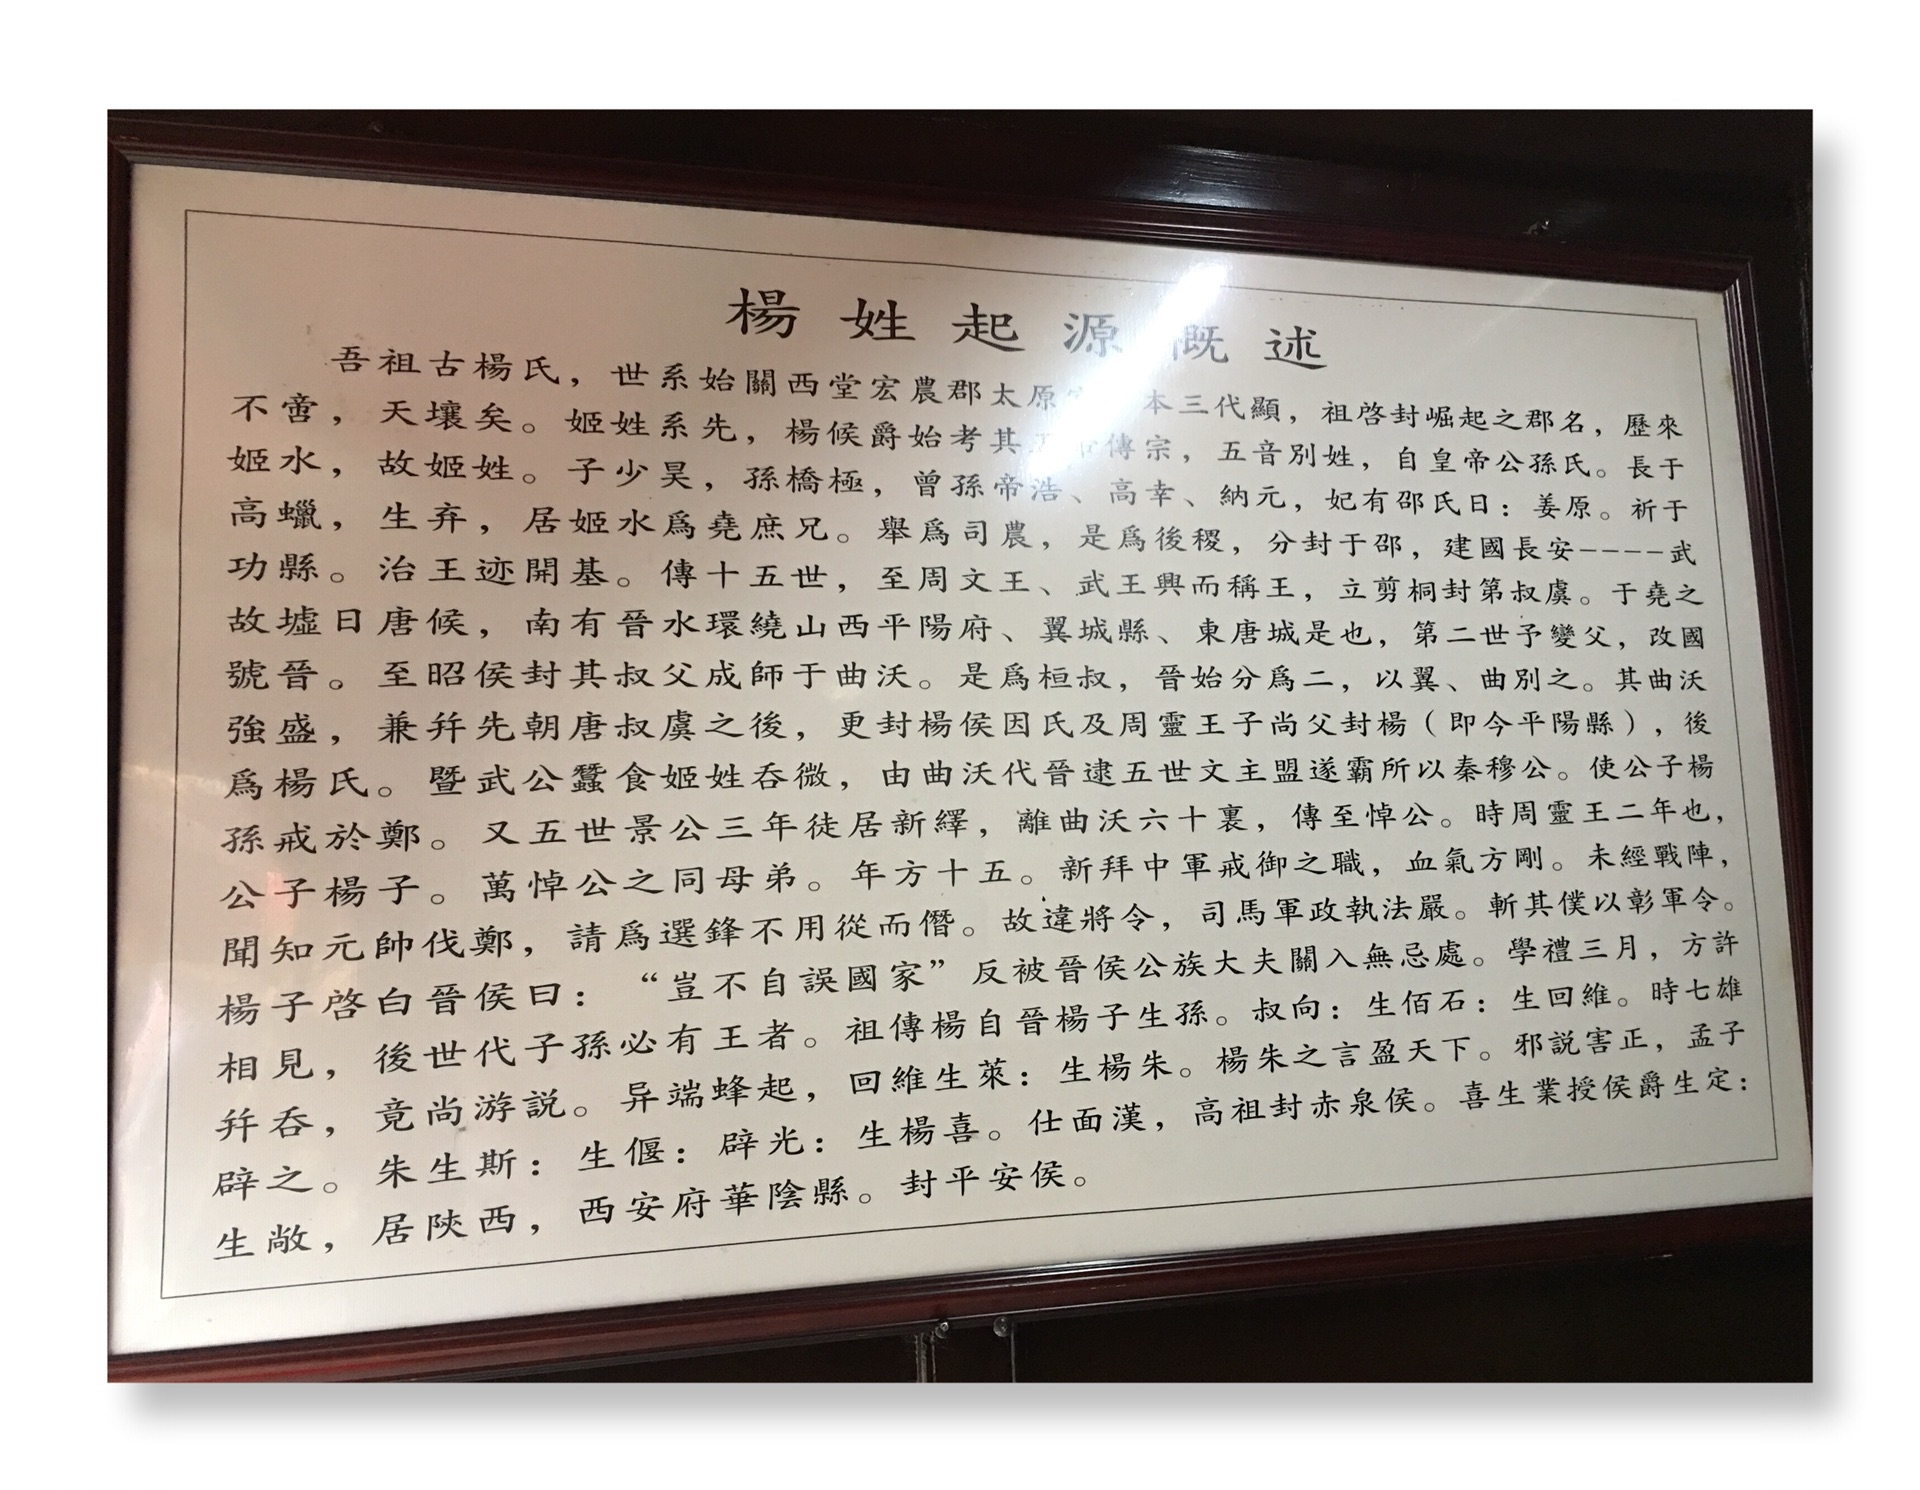 楊姓起源概述
吾祖古楊氏，世系始關西堂宏農郡太原 本三代顯，祖啓封崛起之郡名，歷來
不啻，天壤矣。姬姓系先，楊候爵始考其 傳宗，五音別姓，自皇帝公孫氏。長于
姬水，故姬姓。子少昊，孫橋極，曾孫帝浩、高幸、納元，妃有邵氏日：姜原。祈于
高蠟，生弃，居姬水爲堯庶兄。舉爲司農，是爲後稷，分封于邵，建國長安----武
功縣。治王迹開基。傳十五世，至周文王、武王興而稱王，立剪桐封第叔虞。于堯之
故墟日唐候，南有晉水環繞山西平陽府、翼城縣、東唐城是也，第二世予變父，改國
號晉。至昭侯封其叔父成師于曲沃。是爲桓叔，晉始分爲二，以翼、曲別之。其曲沃
強盛，兼幷先朝唐叔虞之後，更封楊侯因氏及周靈王子尚父封楊（即今平陽縣），後
爲楊氏。暨武公蠶食姬姓吞微，由曲沃代晉逮五世文主盟遂霸所以秦穆公。使公子楊
孫戒於鄭。又五世景公三年徒居新繹，離曲沃六十裏，傳至悼公。時周靈王二年也，
公子楊子。萬悼公之同母弟。年方十五。新拜中軍戒御之職，血氣方剛。未經戰陣，
聞知元帥伐鄭，請爲選鋒不用從而僭。故違將令，司馬軍政執法嚴。斬其僕以彰軍令。
楊子啓白晉侯曰：“豈不自誤國家”反被晉侯公族大夫關入無忌處。學禮三月，方許
相見，後世代子孫必有王者。祖傳楊自晉楊子生孫。叔向：生佰石：生回維。時七雄
幷吞，竟尚游説。异端蜂起，回維生萊：生楊朱。楊朱之言盈天下。邪説害正，孟子
辟之。朱生斯：生偃：辟光：生楊喜。仕面漢，高祖封赤泉侯。喜生業授侯爵生定：
生敞，居陝西，西安府華陰縣。封平安侯。